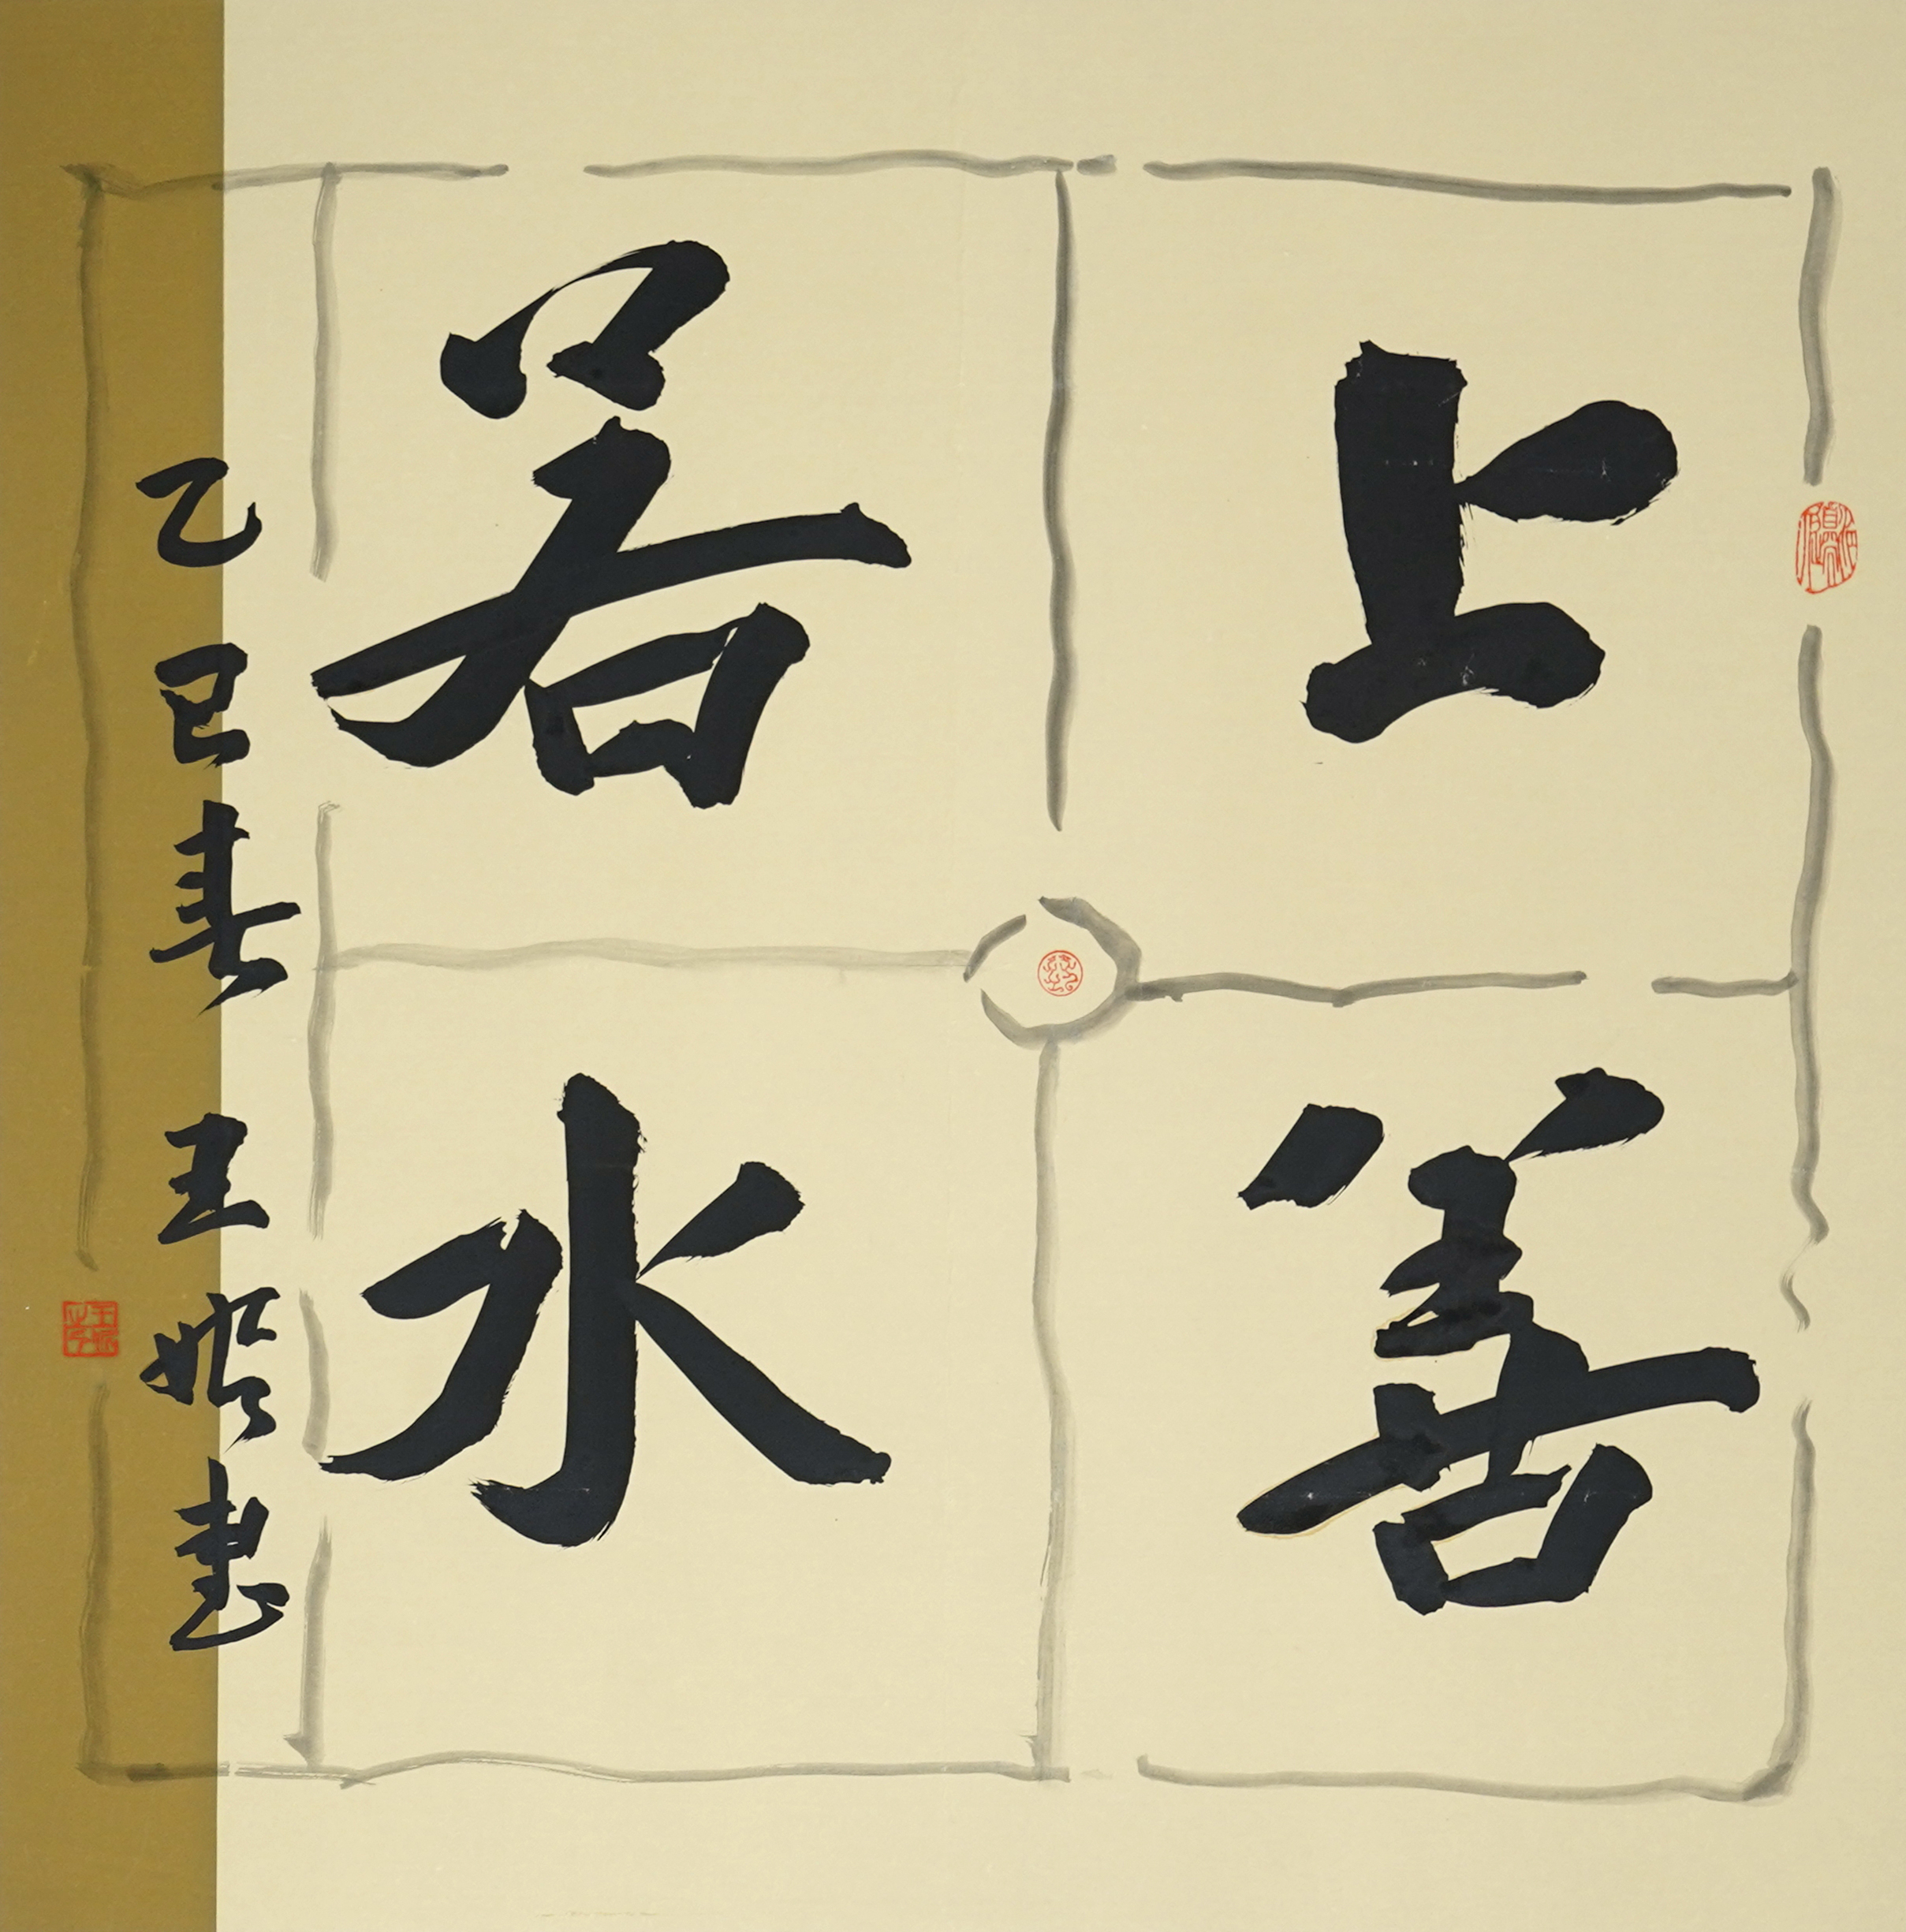 上善
若水
乙巳春 王 书